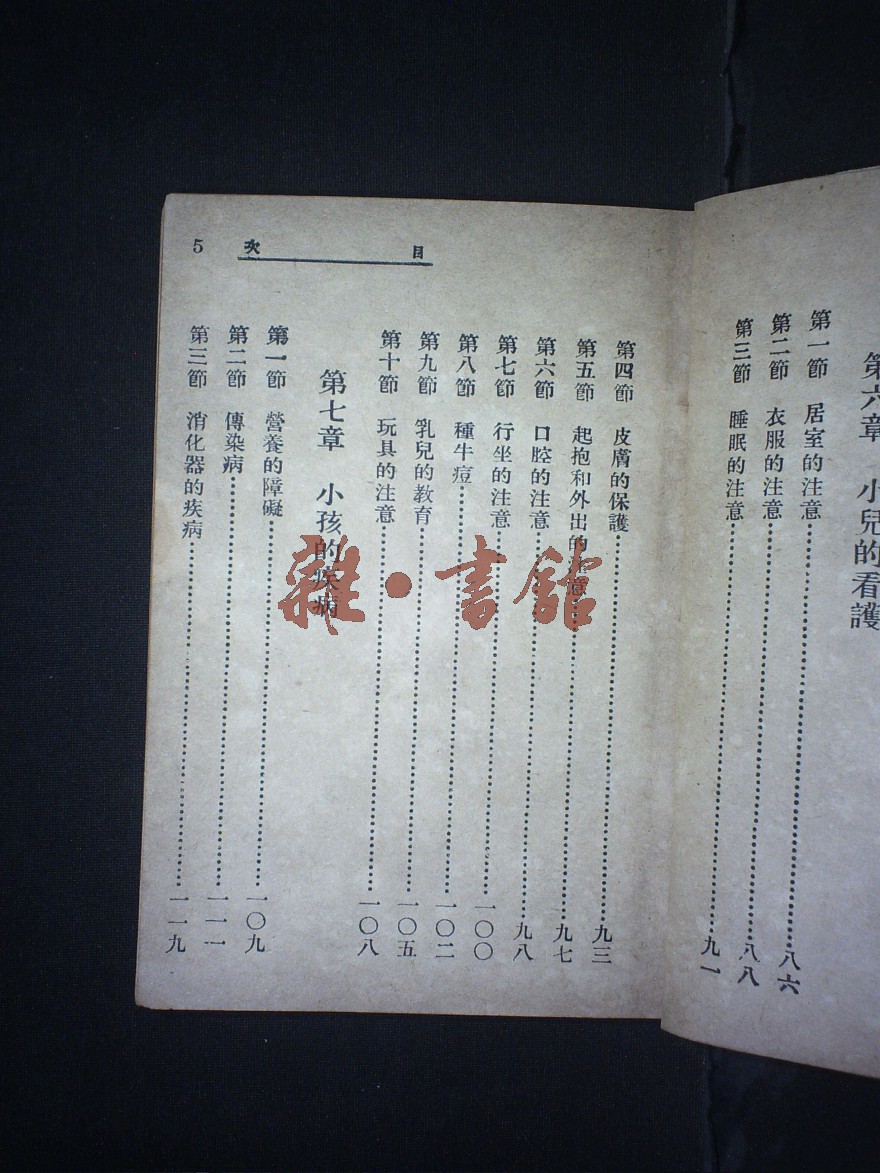 第六章　小兒的看護
第一節　居室的注意…………八六
第二節　衣服的注意…………八八
第三節　睡眠的注意…………九一
目次　5
第四節　皮膚的保護…………九三
第五節　起抱和外出的注意…………九七
第六節　口腔的注意…………九八
第七節　行坐的注意…………一〇〇
第八節　種牛痘…………一〇二
第九節　乳兒的教育…………一〇五
第十節　玩具的注意…………一〇八
第七章　小孩的疾病
第一節　營養的障礙…………一〇九
第二節　傳染病…………一一一
第三節　消化器的疾病…………一一九
雜·書館